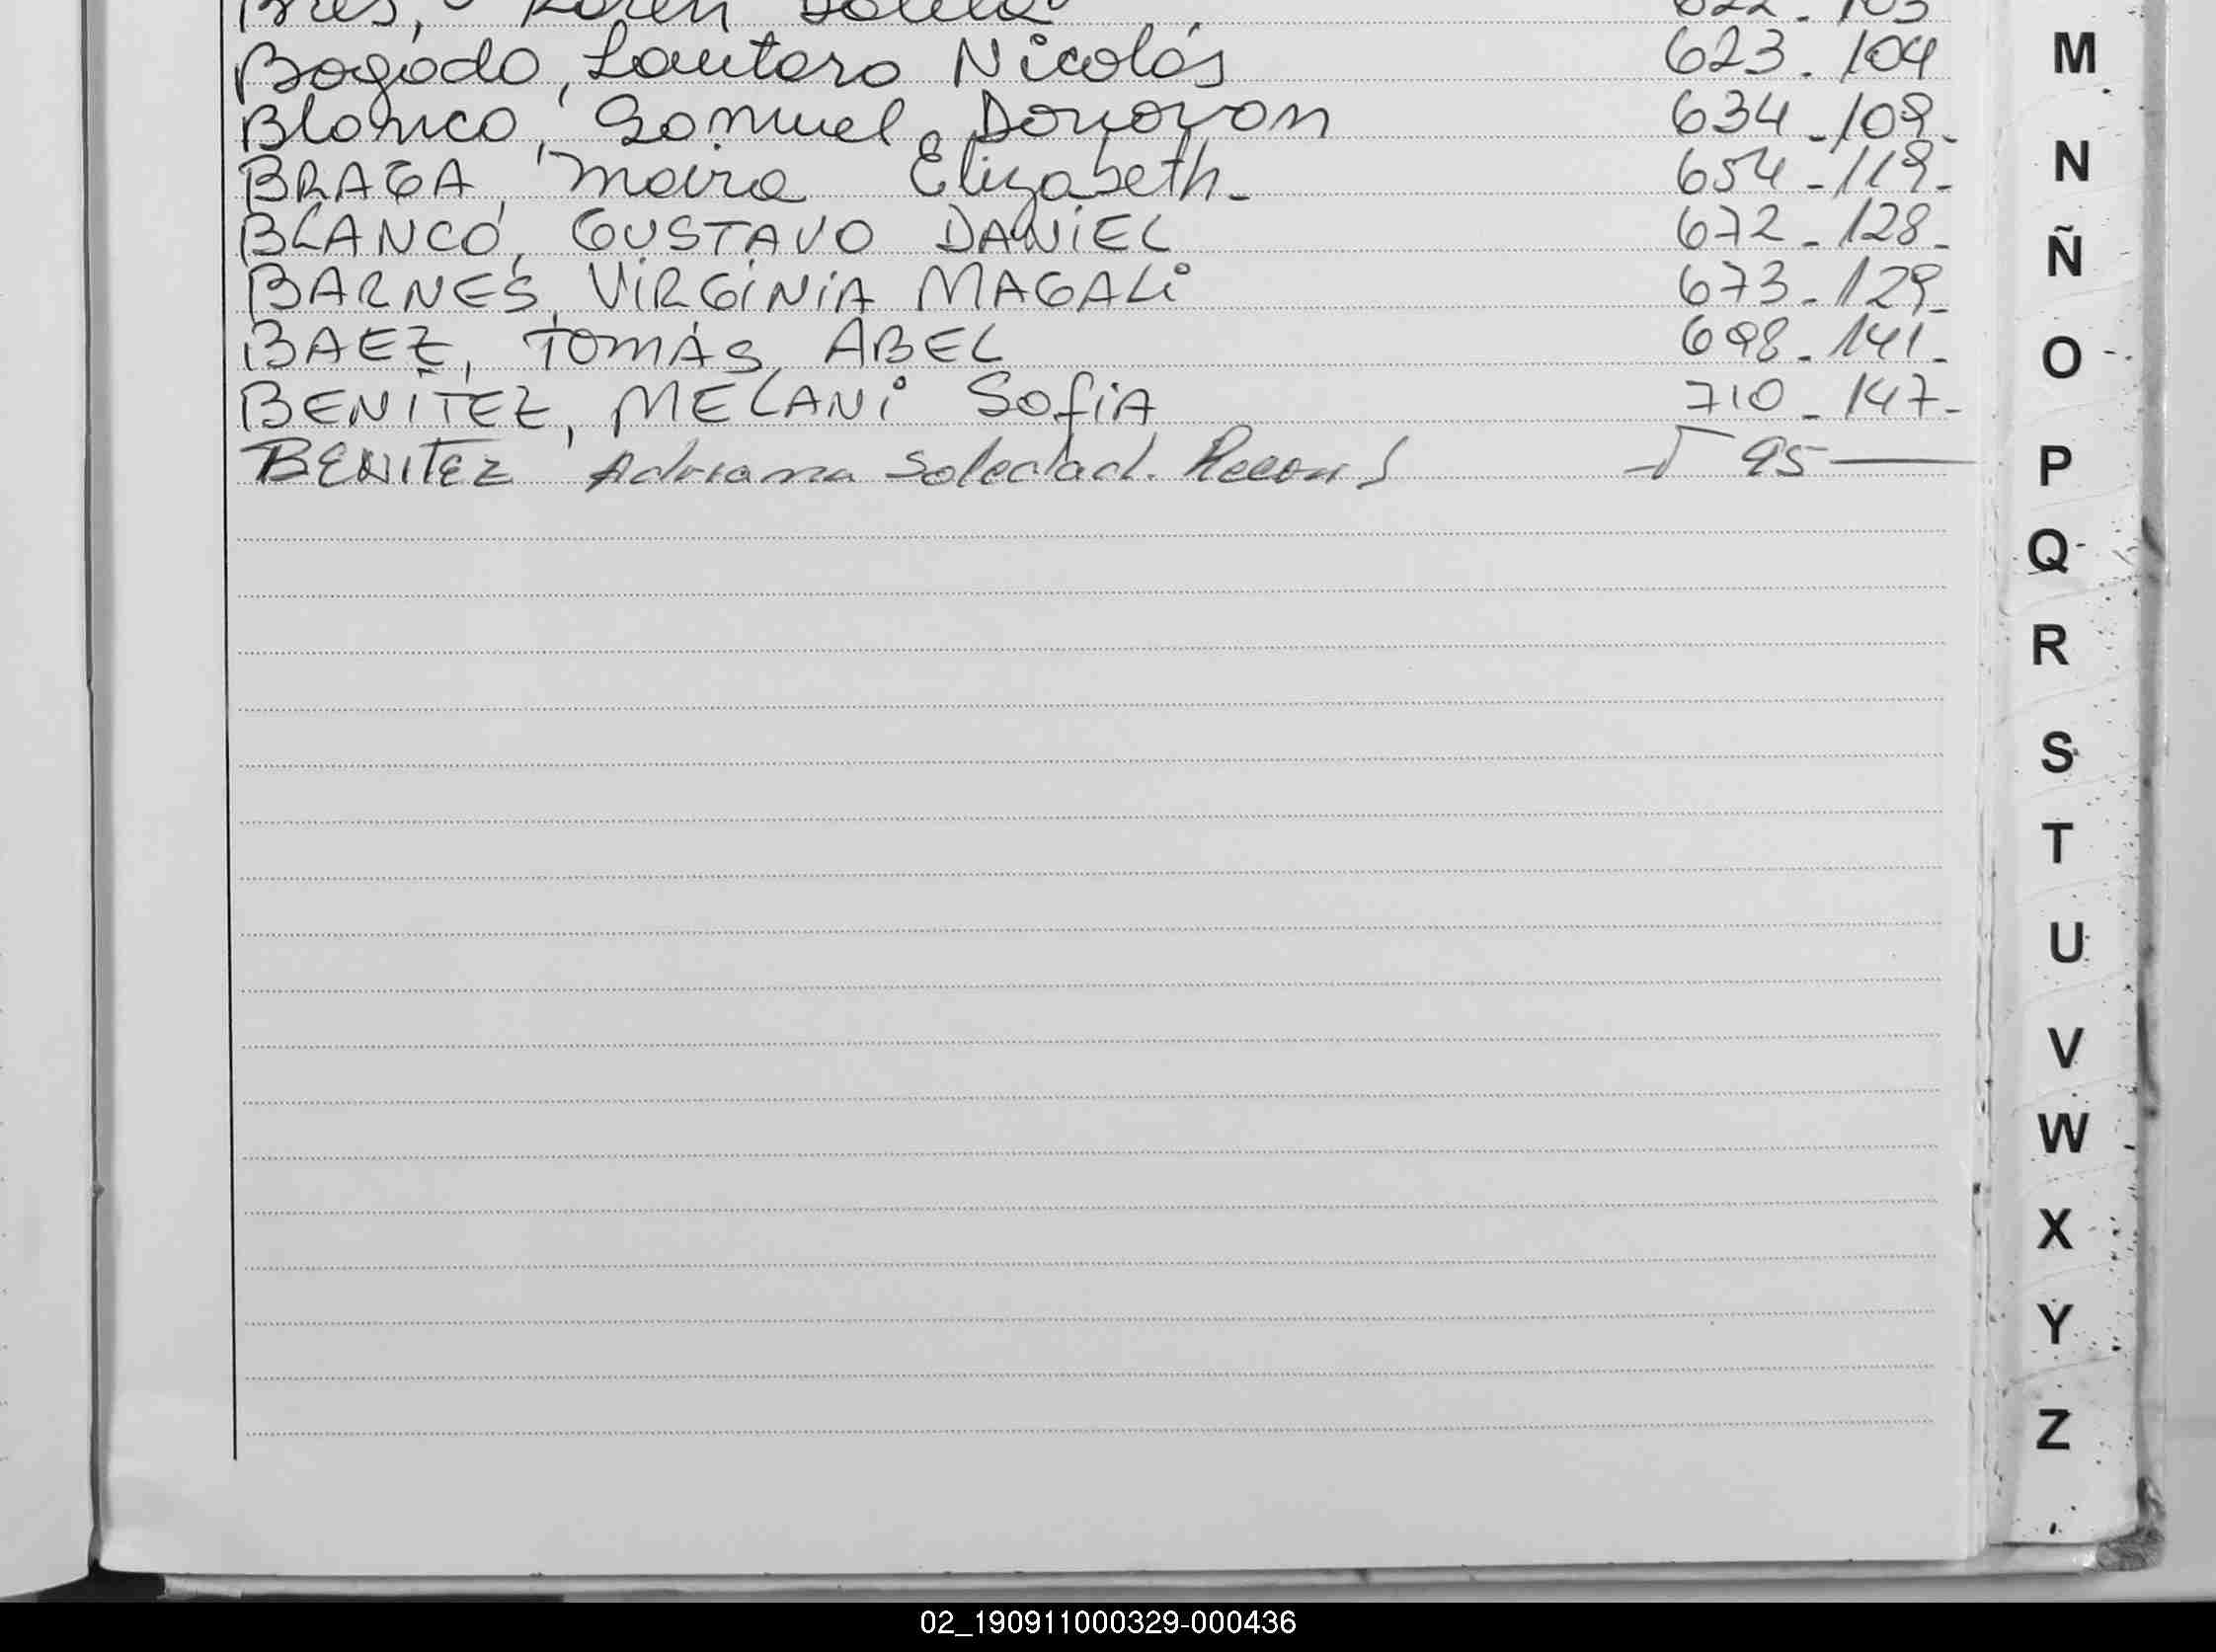 Karen
622 - 103
Bogado, Lautaro Nicolás 623 - 104
Blanco, Samuel Donovan 634 - 109 -
BRAGA, Maira Elizabeth - 654 - 119 -
BLANCO, GUSTAVO DANIEL 672 - 128 -
BARNES, VIRGINIA MAGALI 673 - 129 -
BAEZ, TOMÁS ABEL 698 - 141 -
BENITEZ, MELANI SOFIA 710 - 147 -
BENITEZ Adriana Soledad. 95
M
N
Ñ
O
P
Q
R
S
T
U
V
W
X
Y
Z
02_190911000329-000436